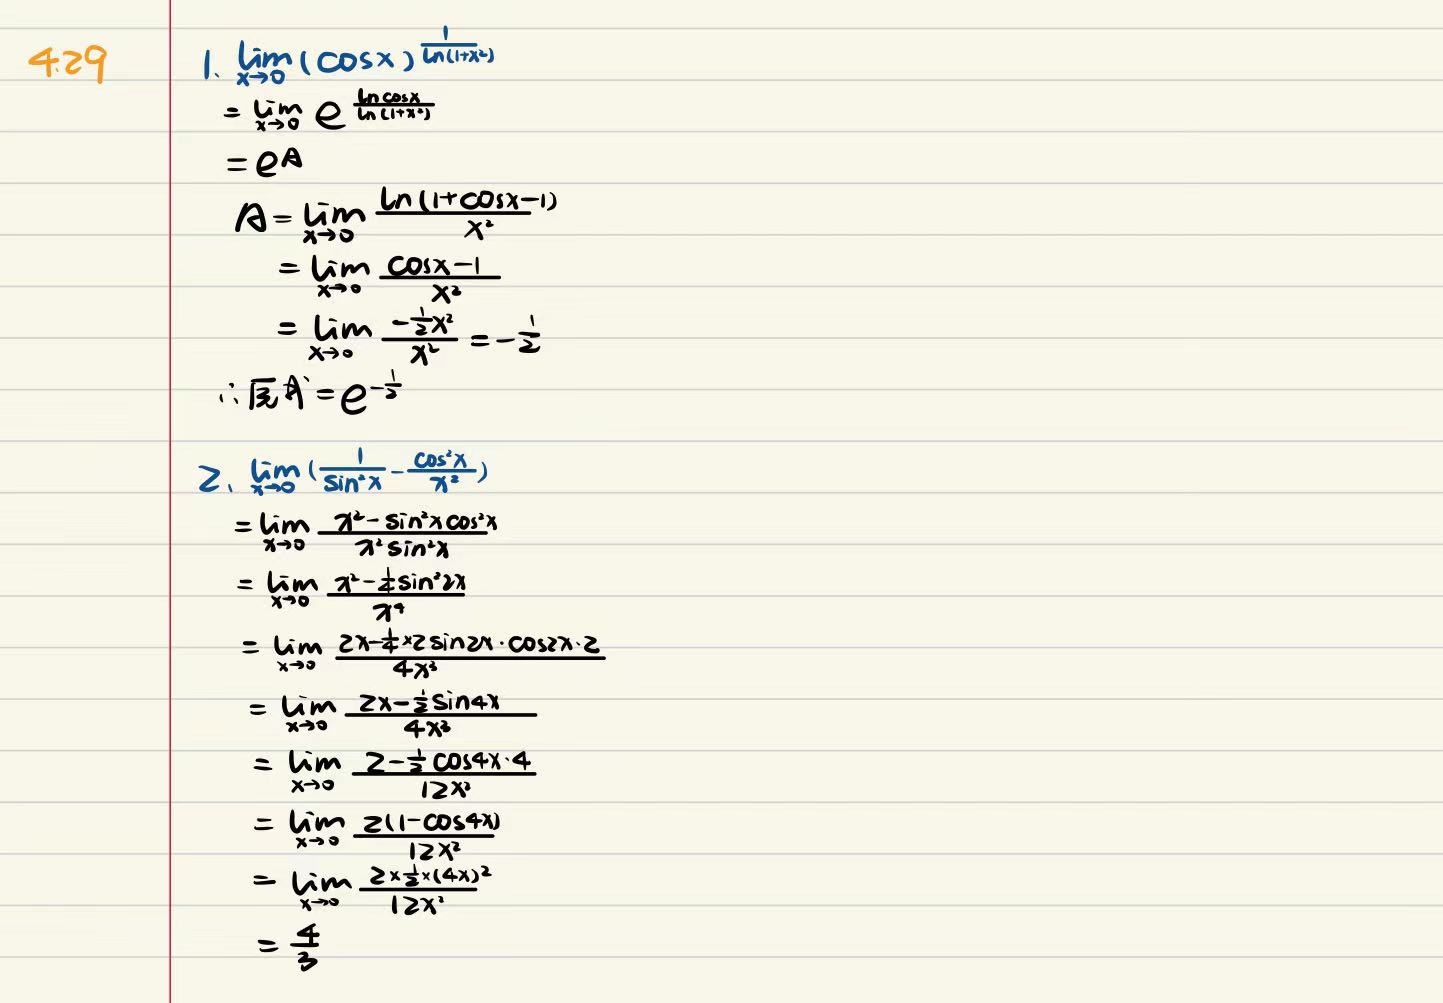 4.29
1. lim_{x→0} (cosx)^{1/ln(1+x²)}
= lim_{x→0} e^{lncosx/ln(1+x²)}
= e^A
A = lim_{x→0} ln(1+cosx-1)/x²
= lim_{x→0} (cosx-1)/x²
= lim_{x→0} (-½x²)/x² = -½
∴原式 = e^{-½}
2. lim_{x→0} (1/sin²x - cos²x/x²)
= lim_{x→0} (x²-sin²xcos²x)/(x²sin²x)
= lim_{x→0} (x²-¼sin²2x)/x⁴
= lim_{x→0} (2x-¼×2sin2x·cos2x·2)/4x³
= lim_{x→0} (2x-½sin4x)/4x³
= lim_{x→0} (2-½cos4x·4)/12x²
= lim_{x→0} 2(1-cos4x)/12x²
= lim_{x→0} (2×½×(4x)²)/12x²
= 4/3